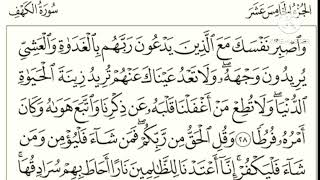 الجزء الخامس عشر سورة الكهف
واصبر نفسك مع الذين يدعون ربهم بالغدوة والعشي
يريدون وجهه ولا تعد عيناك عنهم تريد زينة الحيوة
الدنيا ولا تطع من أغفلنا قلبه عن ذكرنا واتبع هوىه وكان
أمره فرطا ٢٨ وقل الحق من ربكم فمن شاء فليؤمن ومن
شاء فليكفر إنا أعتدنا للظلمين نارا أحاط بهم سرادقها